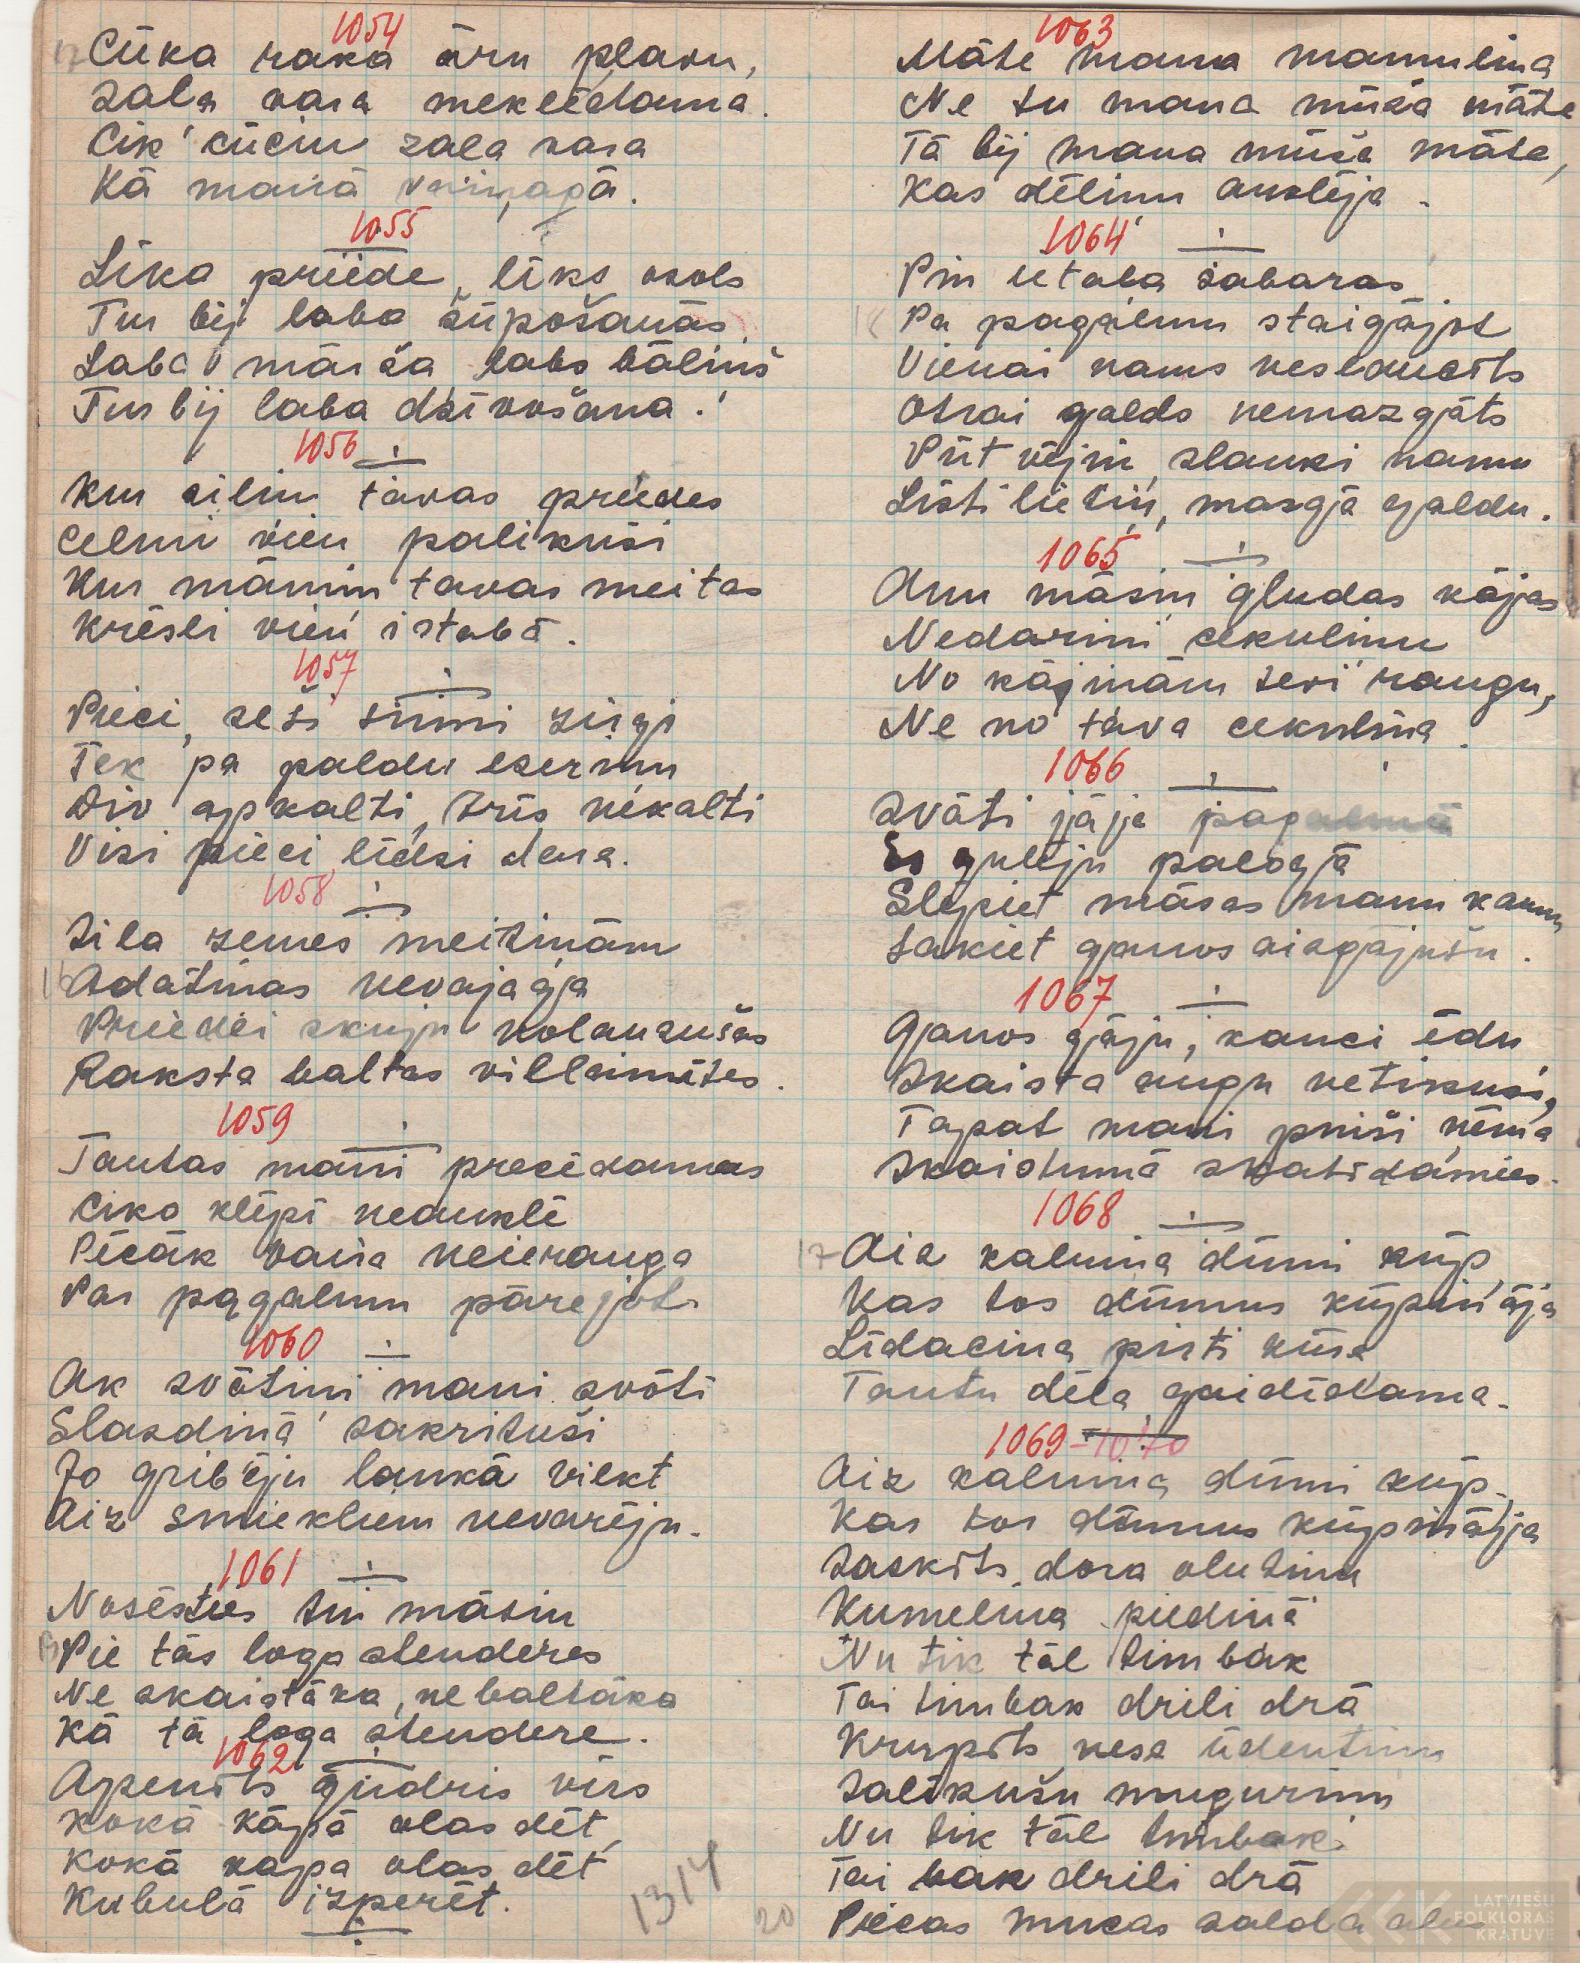 1054
Cūka raka āru pļavu,
Zaļa vara meklēdama.
Cik cūciņ zaļa vara
Kā manā vaiņagā.
1055
Līka priede, līks osols
Tur bij laba šūpošanās
Laba māsša labs bāliņš
Tur bij laba dzīvošana.
1056
Kur siliņ tavas priedes
Celmi vien palikuši
Kur māmiņ tavas meitas
Krēsli vien istabā.
1057
Pieci, seši sirmi zirgi
Tek pa paldu ezeriņu
Div apkalti, trīs nekalti
Visi pieci līdzi dena.
1058
Sila zemes meitiņām
Adatiņas nevajagja
Priedei skuju nolauzušas
Raksta baltas villainītes.
1059
Tautas mani precēdamas
Ciko klēpī neauklē
Pēcāk vaira neierauga
Par pagalmu pārejot.
1060
Ak svātiņi mani svāti
Slazdiņā sakrituši
Jo gribēju laukā vilkt
Aiz smiekliem nevarēju.
1061
Nosēsties tu māsiņ
Pie tās loga stenderes
Ne skaistāka, ne baltāka
Kā tā loga stendere.
1062
Apenīts gudris vīrs
Kokā kāpa olas dēt,
Kokā kāpa olas dēt
Kubulā izperēt.
1314
1063
Māte mana mamuliņa
Ne tu mana mūža māte
Tā bij mana mūža māte,
Kas dēliņu auklēja.
1064
Pin ietaļa žabaras
Pa pagalmu staigājot
Vienai nams neslaucīts
Otrai galds nemazgāts
Pūt vējiņ slauki namu
Līsti lietiņ, mazgā galdu.
1065
Aun māsiņ gludas kājas
Nedarini cekuliņu
No kājiņām sevi raugu,
Ne no tava cekuliņa.
1066
Svāti jāja pagalmā
Es gulēju palogjā
Slēpiet māsas manu kaunu
Sakiet ganos aizgājušu.
1067
Ganos gāju, kauci ēdu
Skaista augu netikusi,
Tapat mani puiši ņēma
Skaistumā skatīdamies.
1068
Aiz kalniņa dūmi kūp
Kas tos dūmus kūpināja
Līdaciņa pirti kūra
Tautu dēla gaidīdama.
1069-1070
Aiz kalniņa dūmi kūp.
Kas tos dūmus kūpinājja
Zaķīts dara alutiņu
Kumeliņa pēdiņā
Nu tik tāl timbak
Tai timbak drili drā
Krupīts nesa ūdentiņu
Salīkušu muguriņu
Nu tik tāl timbak
Tai bak drili drā
Piecas mucas salda alu
20
LATVIEŠU
FOLKLORAS
KRĀTUVE